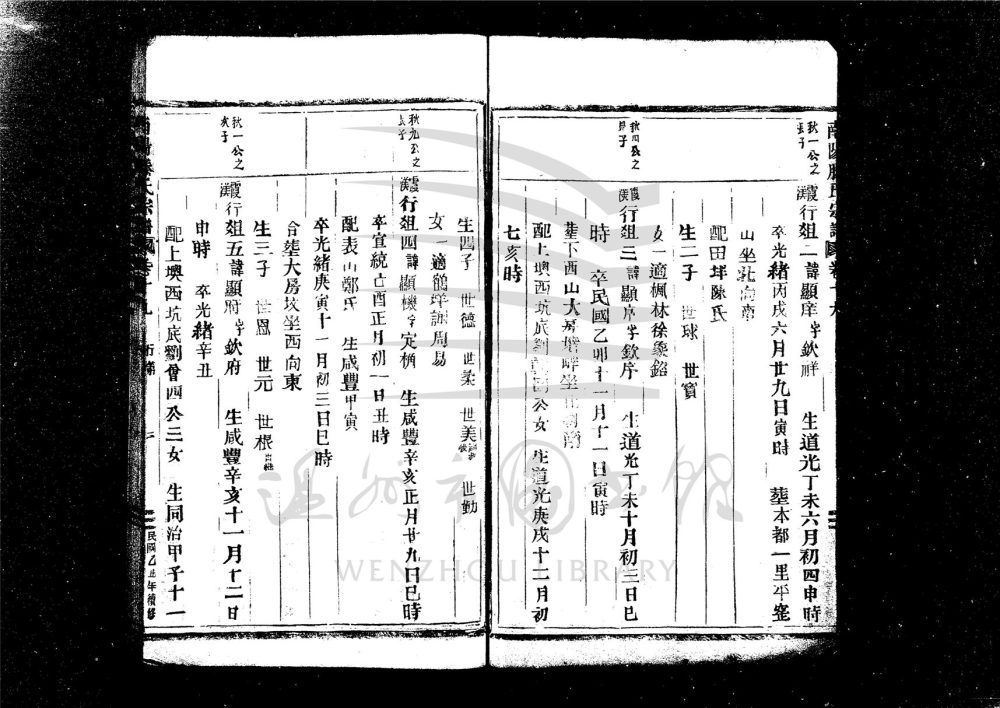 秋一公之
長子
霞漢行俎二諱顯庠字欽祥 生道光丁未六月初四申時
卒光緒丙戌六月廿九日寅時 塟本都一里平
山坐北向南
配田垟陳氏
生二子 世球 世寳
秋四公之
長子
霞漢行俎三諱顯序字欽序 生道光丁未十月初三日巳
時 卒民國乙卯十一月十一日寅時
女一適楓林徐象銘
塟下西山大
配上墺西坑底劉 公女 生道光庚戌十二月初
七亥時
生四子 世德 世柔 世美 世勤
女一適鶴垟謝周易
秋九公之
長子
霞漢行俎四諱顯機字定楠 生咸豐辛亥正月廿九日巳時
卒宣統己酉正月初一日丑時
配表山鄭氏 生咸豐甲寅
卒光緒庚寅十一月初三日巳時
合塟大房坟坐西向東
生三子 世恩 世元 世根
秋一公之
次子
霞漢行俎五諱顯府字欽府 生咸豐辛亥十一月十二日
申時 卒光緒辛丑
配上墺西坑底劉曾四公三女 生同治甲子十一
民國乙丑年續修
溫州市圖書館
WENZHOU LIBRARY